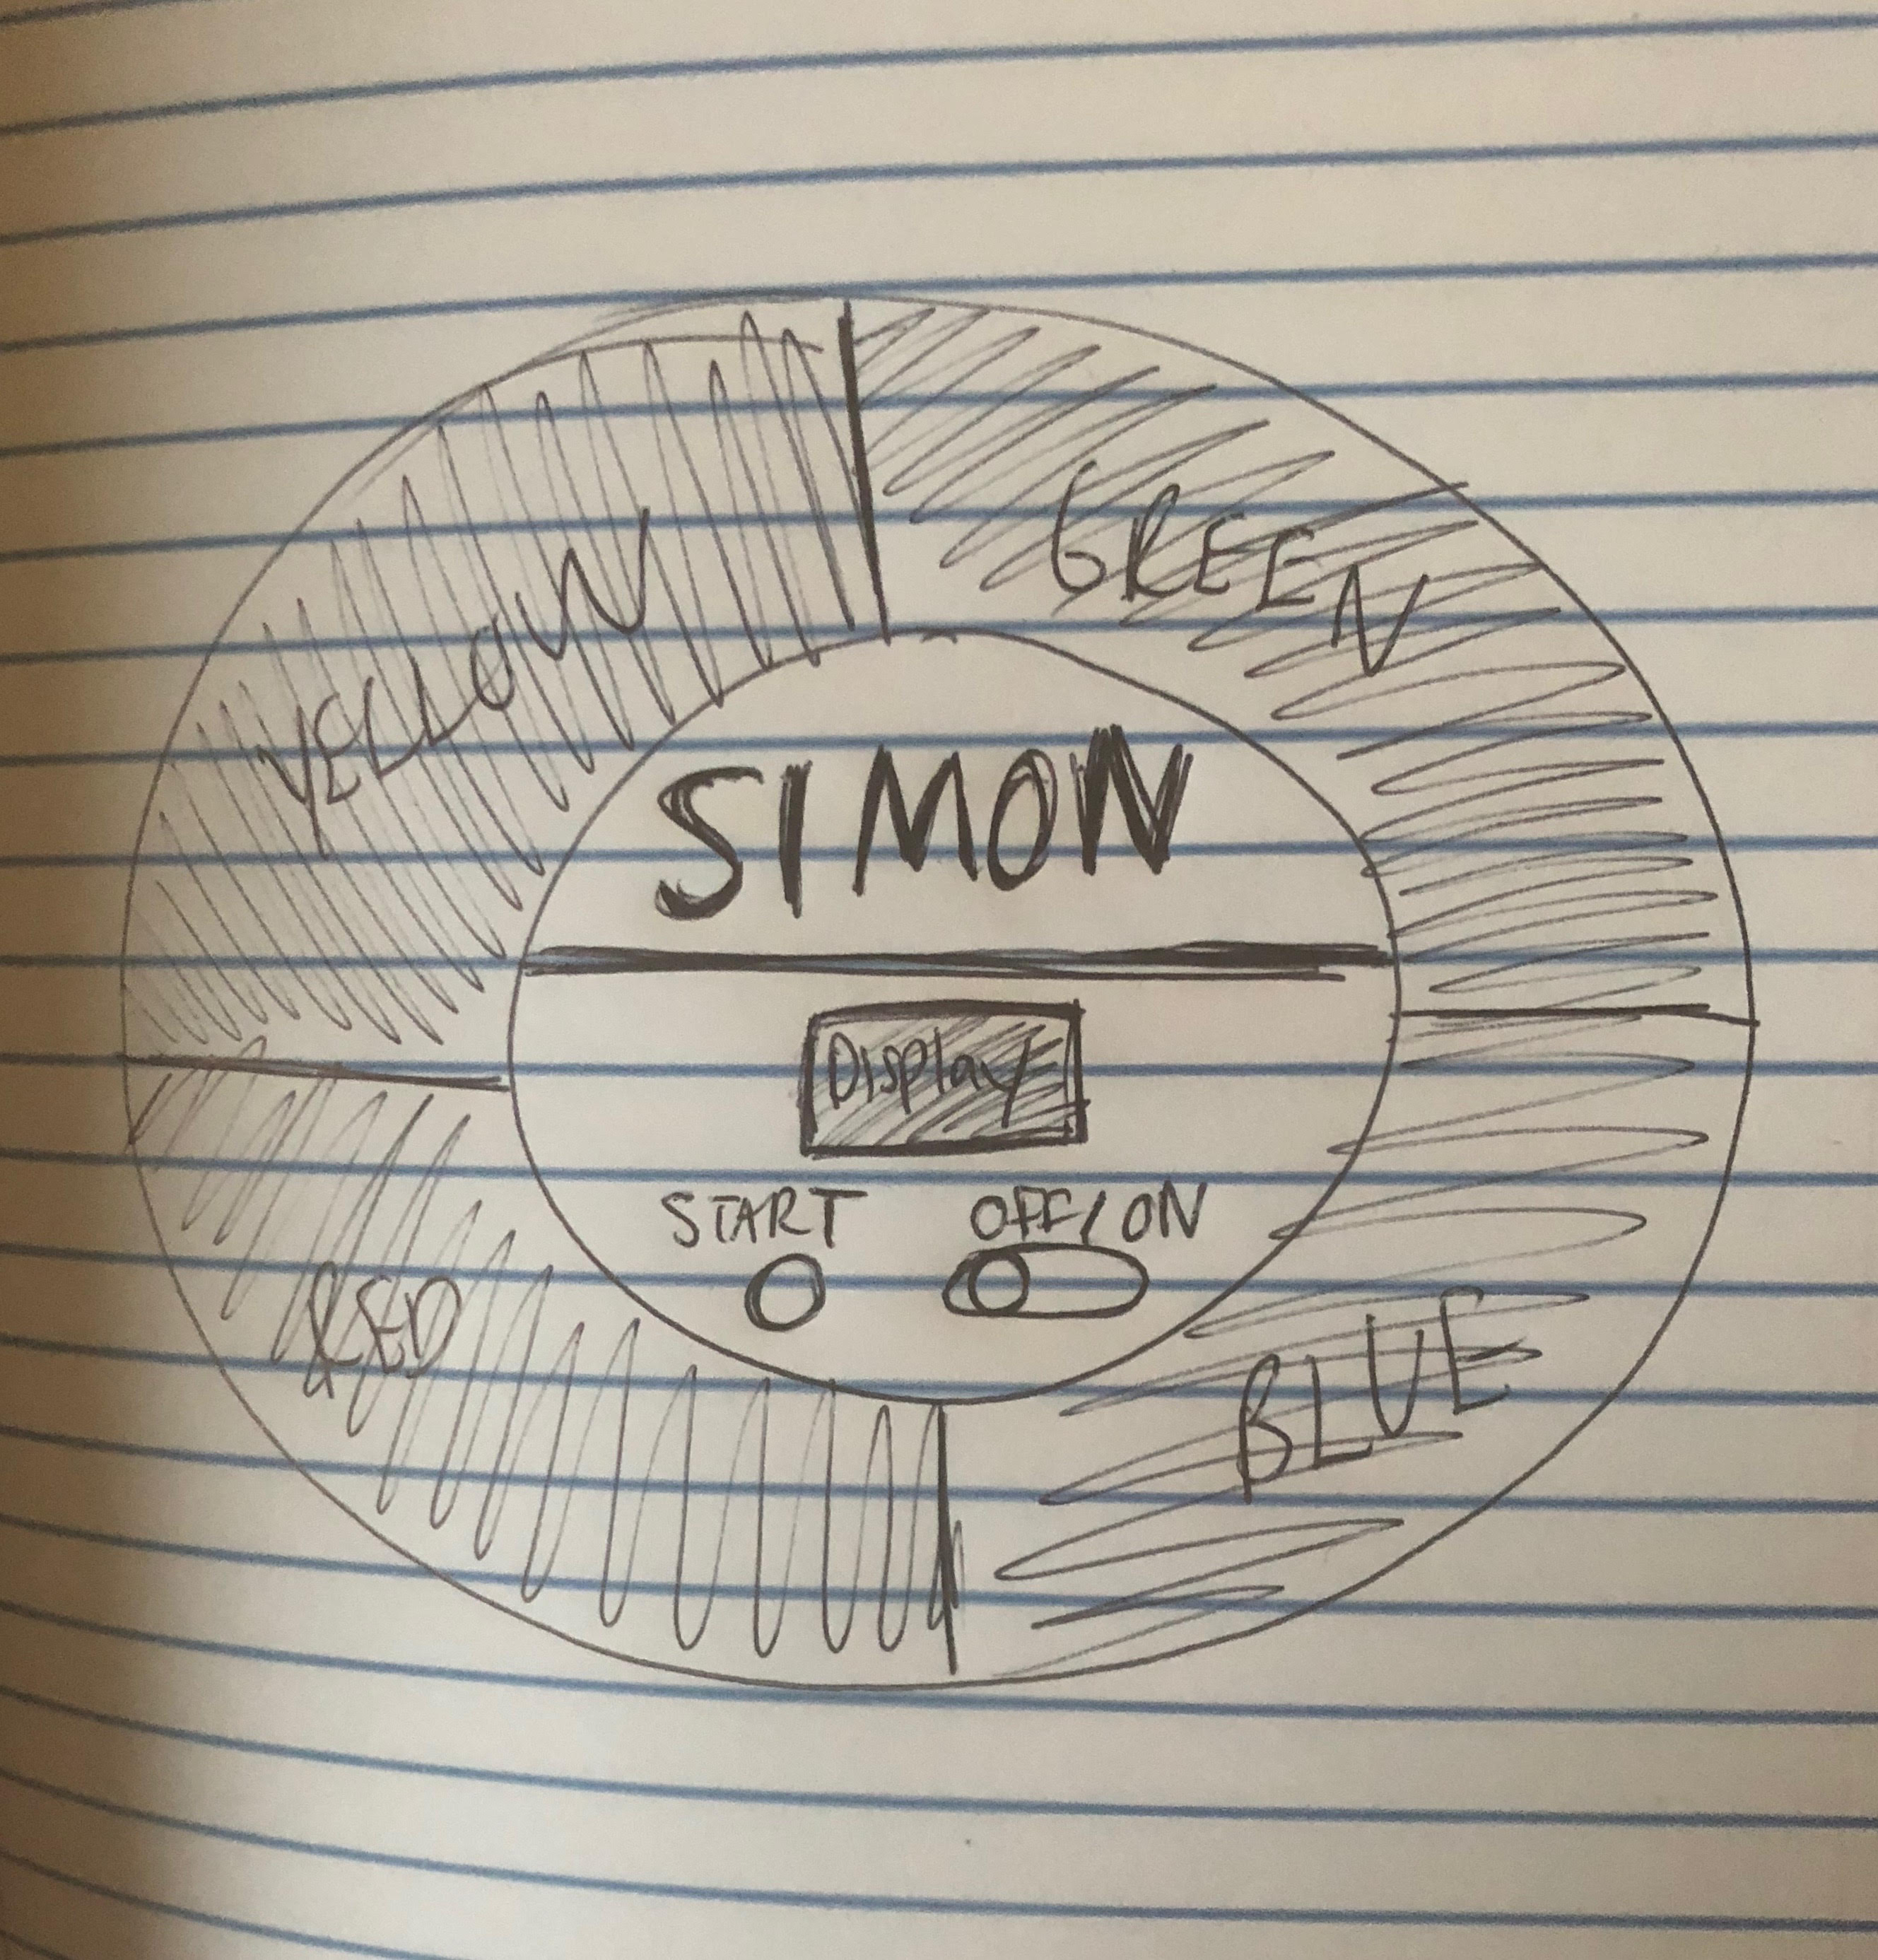 YELLOW
GREEN
SIMON
Display
START OFF/ON
RED
BLUE